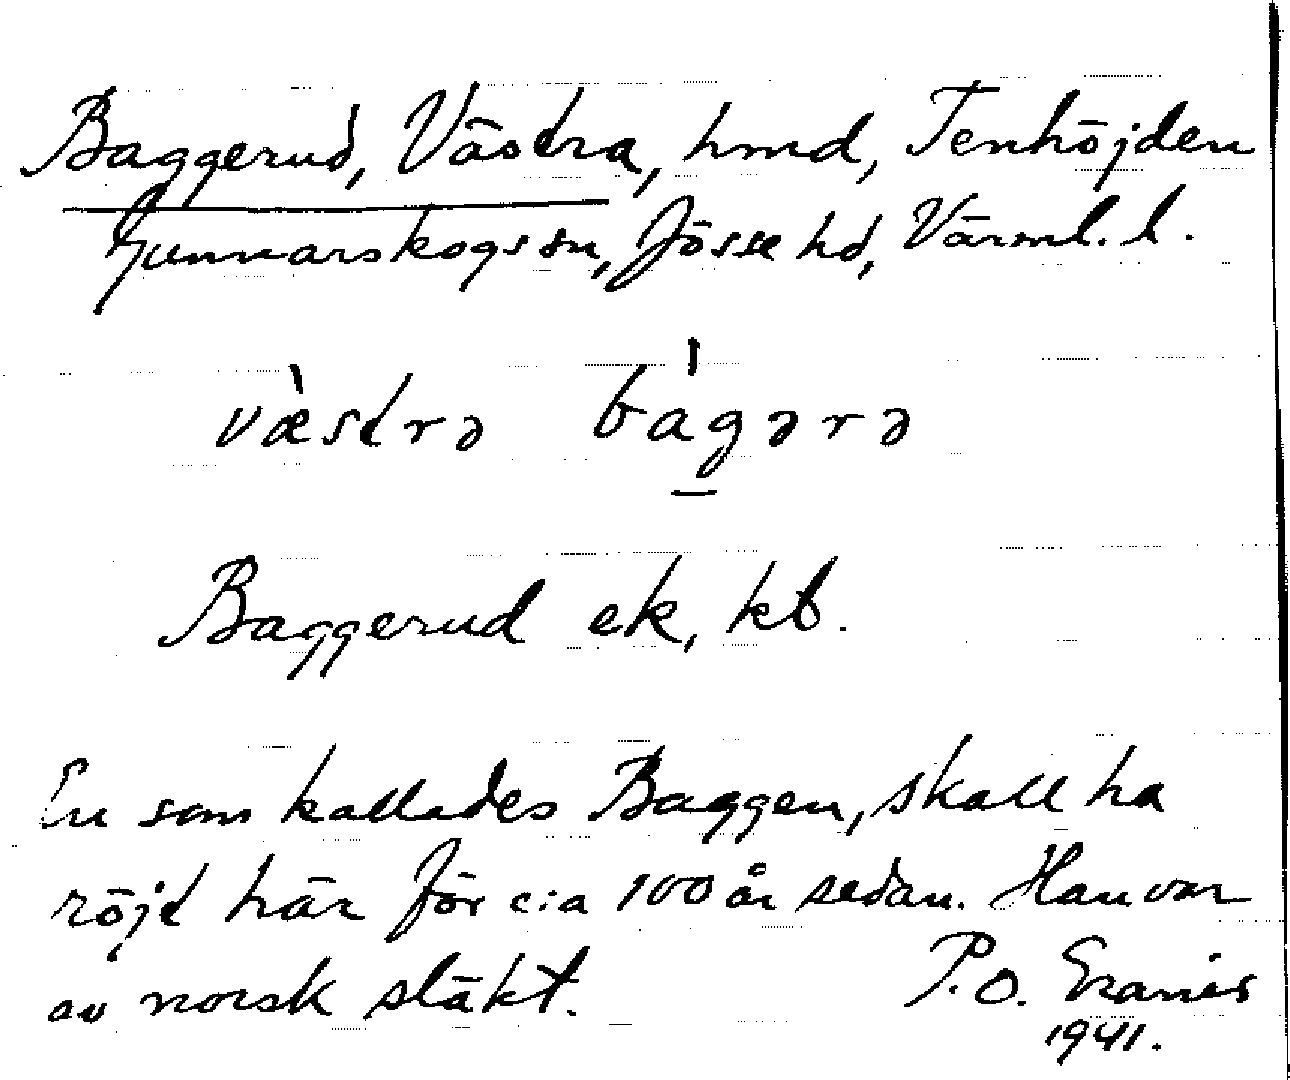 Baggerud, Västra, hmd, Tenhöjden
Gunnarskogs sn, Jösse hd, Värml. l.
væ̀strə bágərə
Baggerud ek, kb.
En som kallades Baggen, skall ha
röjt här för c:a 100 år sedan. Han var
av norsk släkt. P. O.
1941.